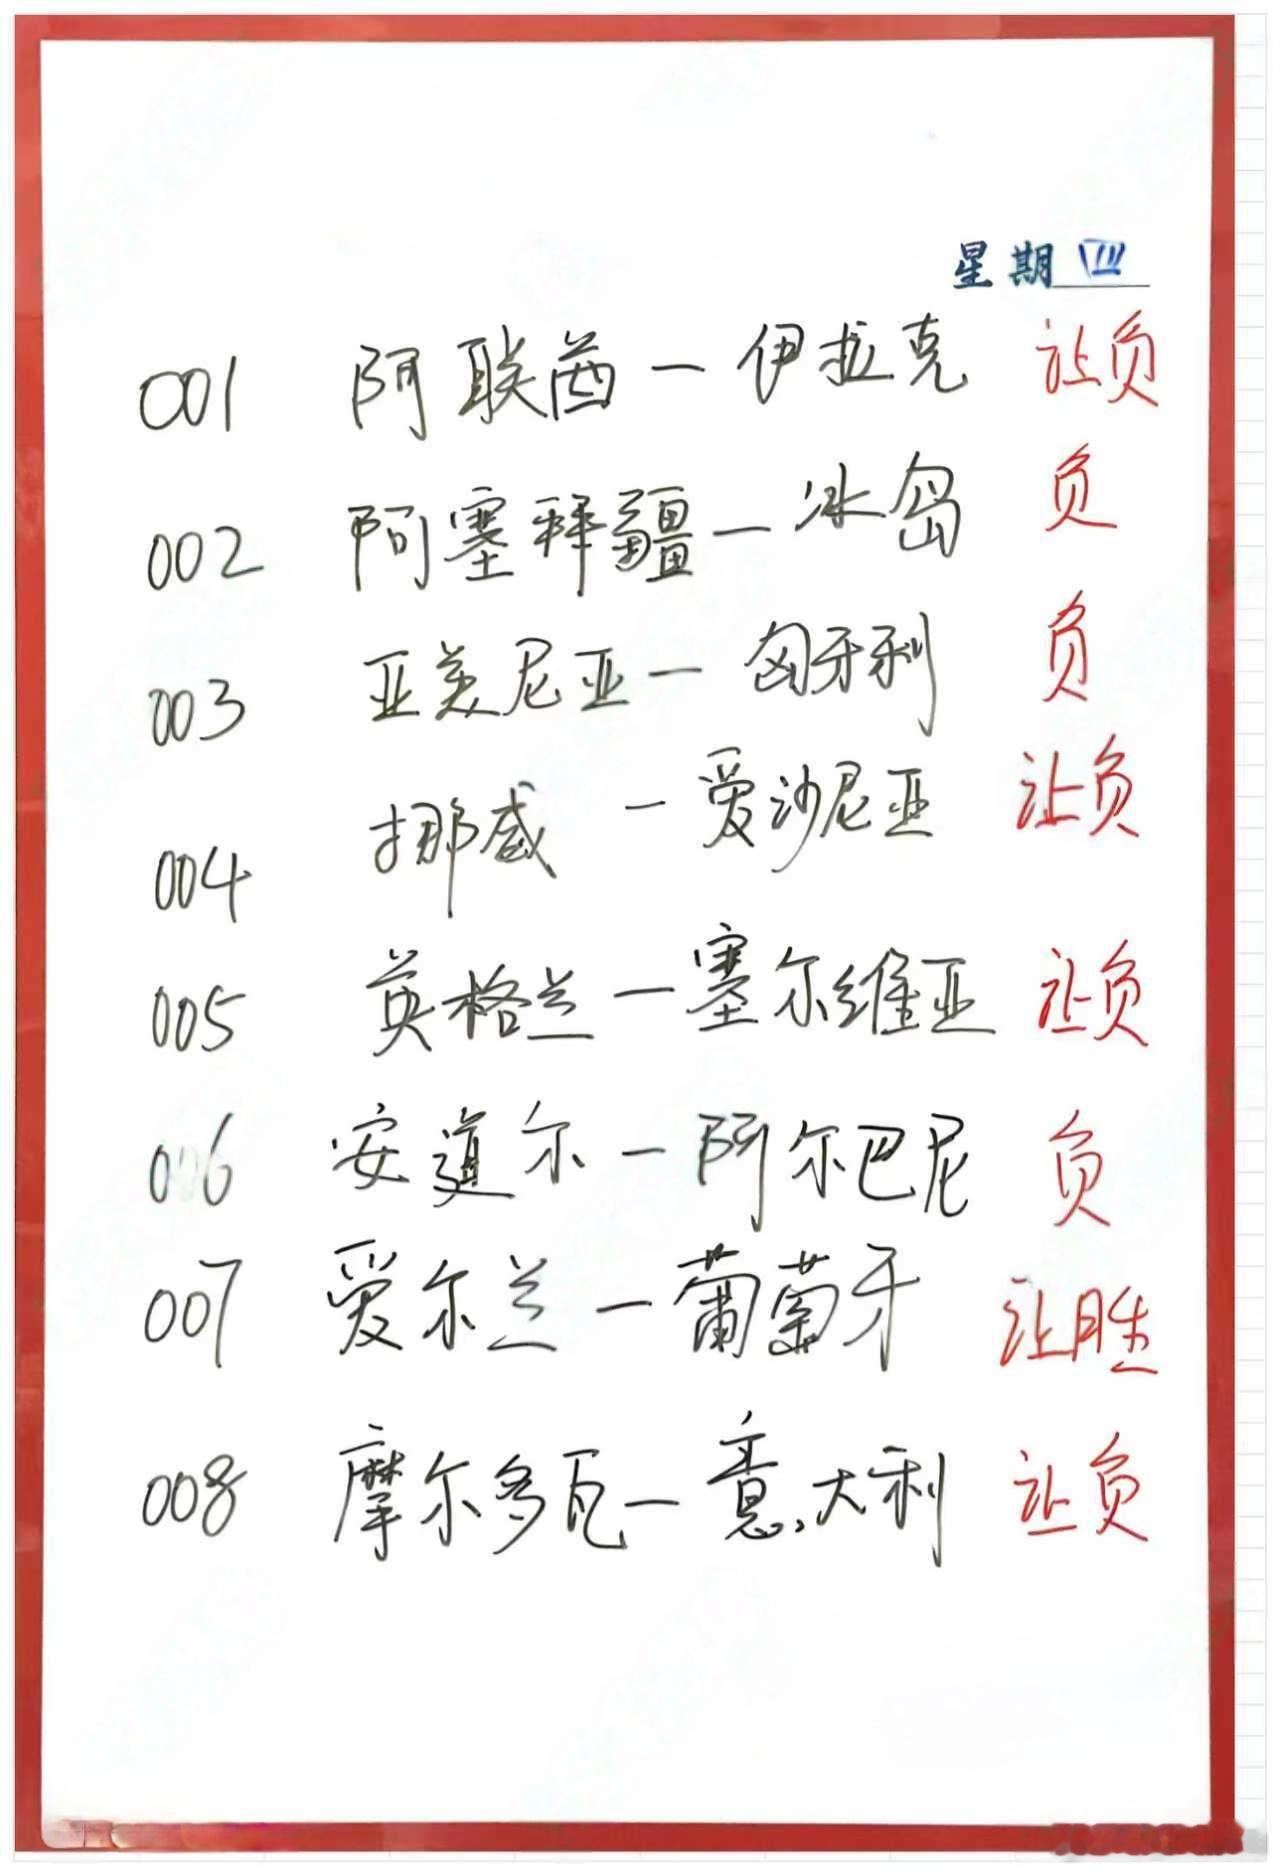 星期四
001 阿联酋 — 伊拉克 让负
002 阿塞拜疆 — 冰岛 负
003 亚美尼亚 — 匈牙利 负
004 挪威 — 爱沙尼亚 让负
005 英格兰 — 塞尔维亚 让负
006 安道尔 — 阿尔巴尼 负
007 爱尔兰 — 葡萄牙 让胜
008 摩尔多瓦 — 意大利 让负